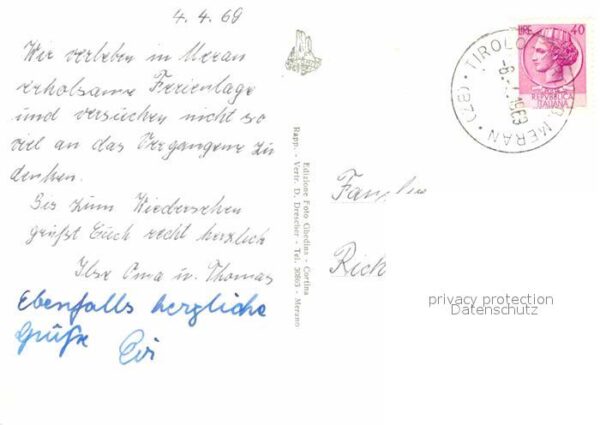 4.4.69
Wir verleben in Meran
erholsame Ferientage
und versuchen nicht so
viel an das Vergangene zu
denken.
Bis zum Wiedersehen
grüßt Euch recht herzlich
Ilse Oma u. Thomas
Ebenfalls herzliche
Grüße Evi
Edizione Foto Ghedina - Cortina
Rapp. - Vertr. D. Drescher - Tel. 20863 - Merano
LIRE 40
REPVBBLICA
ITALIANA
TIROLO
MERAN
(BZ)
Familie
Rich
privacy protection
Datenschutz